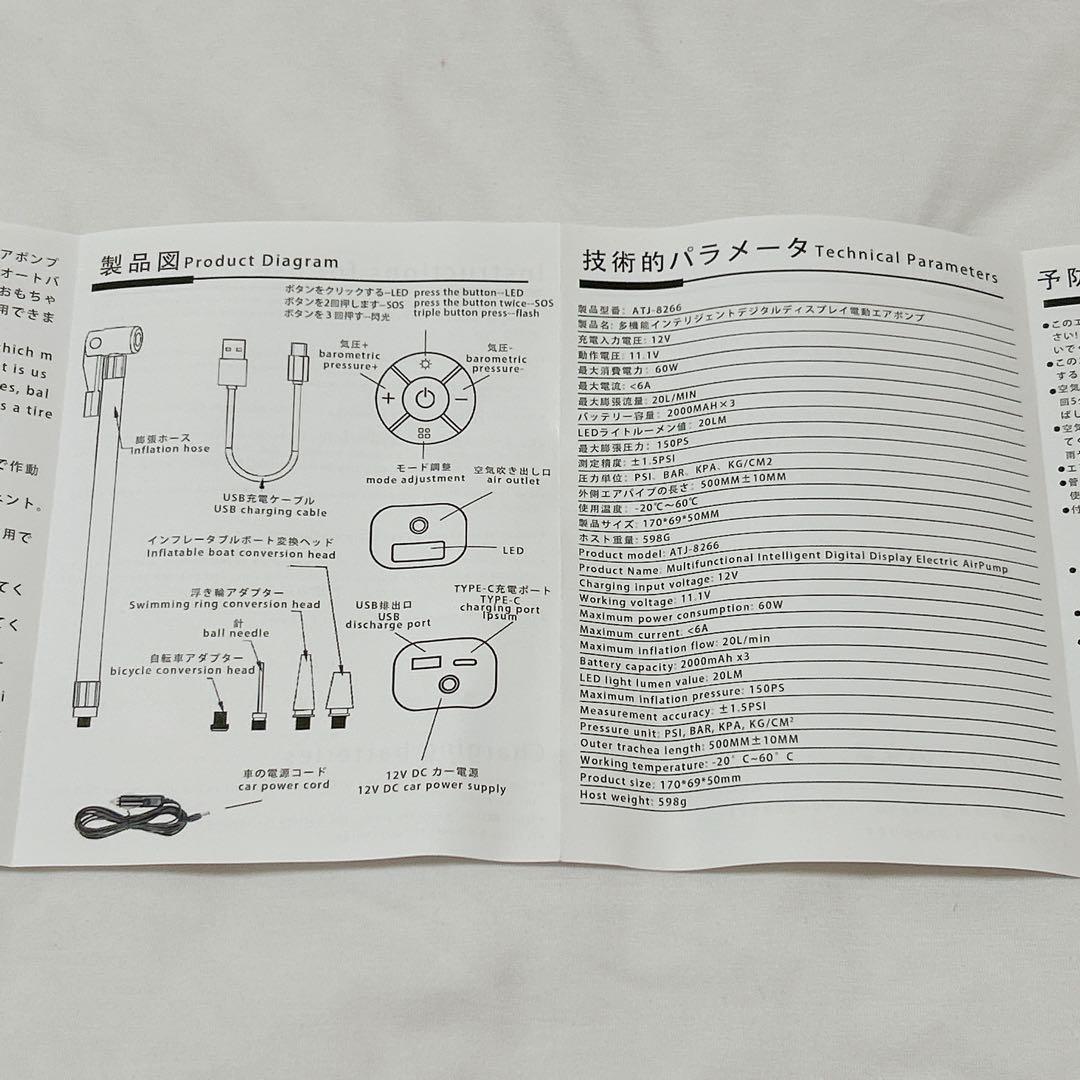 アポンプ
オートバ
おもちゃ
用できま
hich m
t is us
es, bal
s a tire
で作動
ント。
用で
てく
てく
i
製品図Product Diagram
ボタンをクリックする--LED press the button--LED
ボタンを2回押します--SOS press the button twice--SOS
ボタンを３回押す--閃光 triple button press--flash
気圧+
barometric
pressure+
気圧-
barometric
pressure-
+
-
膨張ホース
Inflation hose
モード調整
mode adjustment
空気吹き出し口
air outlet
USB充電ケーブル
USB charging cable
LED
インフレータブルボート変換ヘッド
Inflatable boat conversion head
浮き輪アダプター
Swimming ring conversion head
針
ball needle
自転車アダプター
bicycle conversion head
USB排出口
USB
discharge port
TYPE-C充電ポート
TYPE-C
charging port
Ipsum
車の電源コード
car power cord
12V DC カー電源
12V DC car power supply
技術的パラメータTechnical Parameters
製品型番: ATJ-8266
製品名: 多機能インテリジェントデジタルディスプレイ電動エアポンプ
充電入力電圧: 12V
動作電圧: 11.1V
最大消費電力: 60W
最大電流: <6A
最大膨張流量: 20L/MIN
バッテリー容量: 2000MAH×3
LEDライトルーメン値: 20LM
最大膨張圧力: 150PS
測定精度: ±1.5PSI
圧力単位: PSI、BAR、KPA、KG/CM2
外側エアパイプの長さ: 500MM±10MM
使用温度: -20℃~60℃
製品サイズ: 170*69*50MM
ホスト重量: 598G
Product model: ATJ-8266
Product Name: Multifunctional Intelligent Digital Display Electric AirPump
Charging input voltage: 12V
Working voltage: 11.1V
Maximum power consumption: 60W
Maximum current: <6A
Maximum inflation flow: 20L/min
Battery capacity: 2000mAh x3
LED light lumen value: 20LM
Maximum inflation pressure: 150PS
Measurement accuracy: ±1.5PSI
Pressure unit: PSI, BAR, KPA, KG/CM²
Outer trachea length: 500MM±10MM
Working temperature: -20° C~60° C
Product size: 170*69*50mm
Host weight: 598g
予防
●このエ
さい!
いでく
●この
する
●空気
回5分
ばし
●空気
てく
雨や
●エ
●管
使
●付